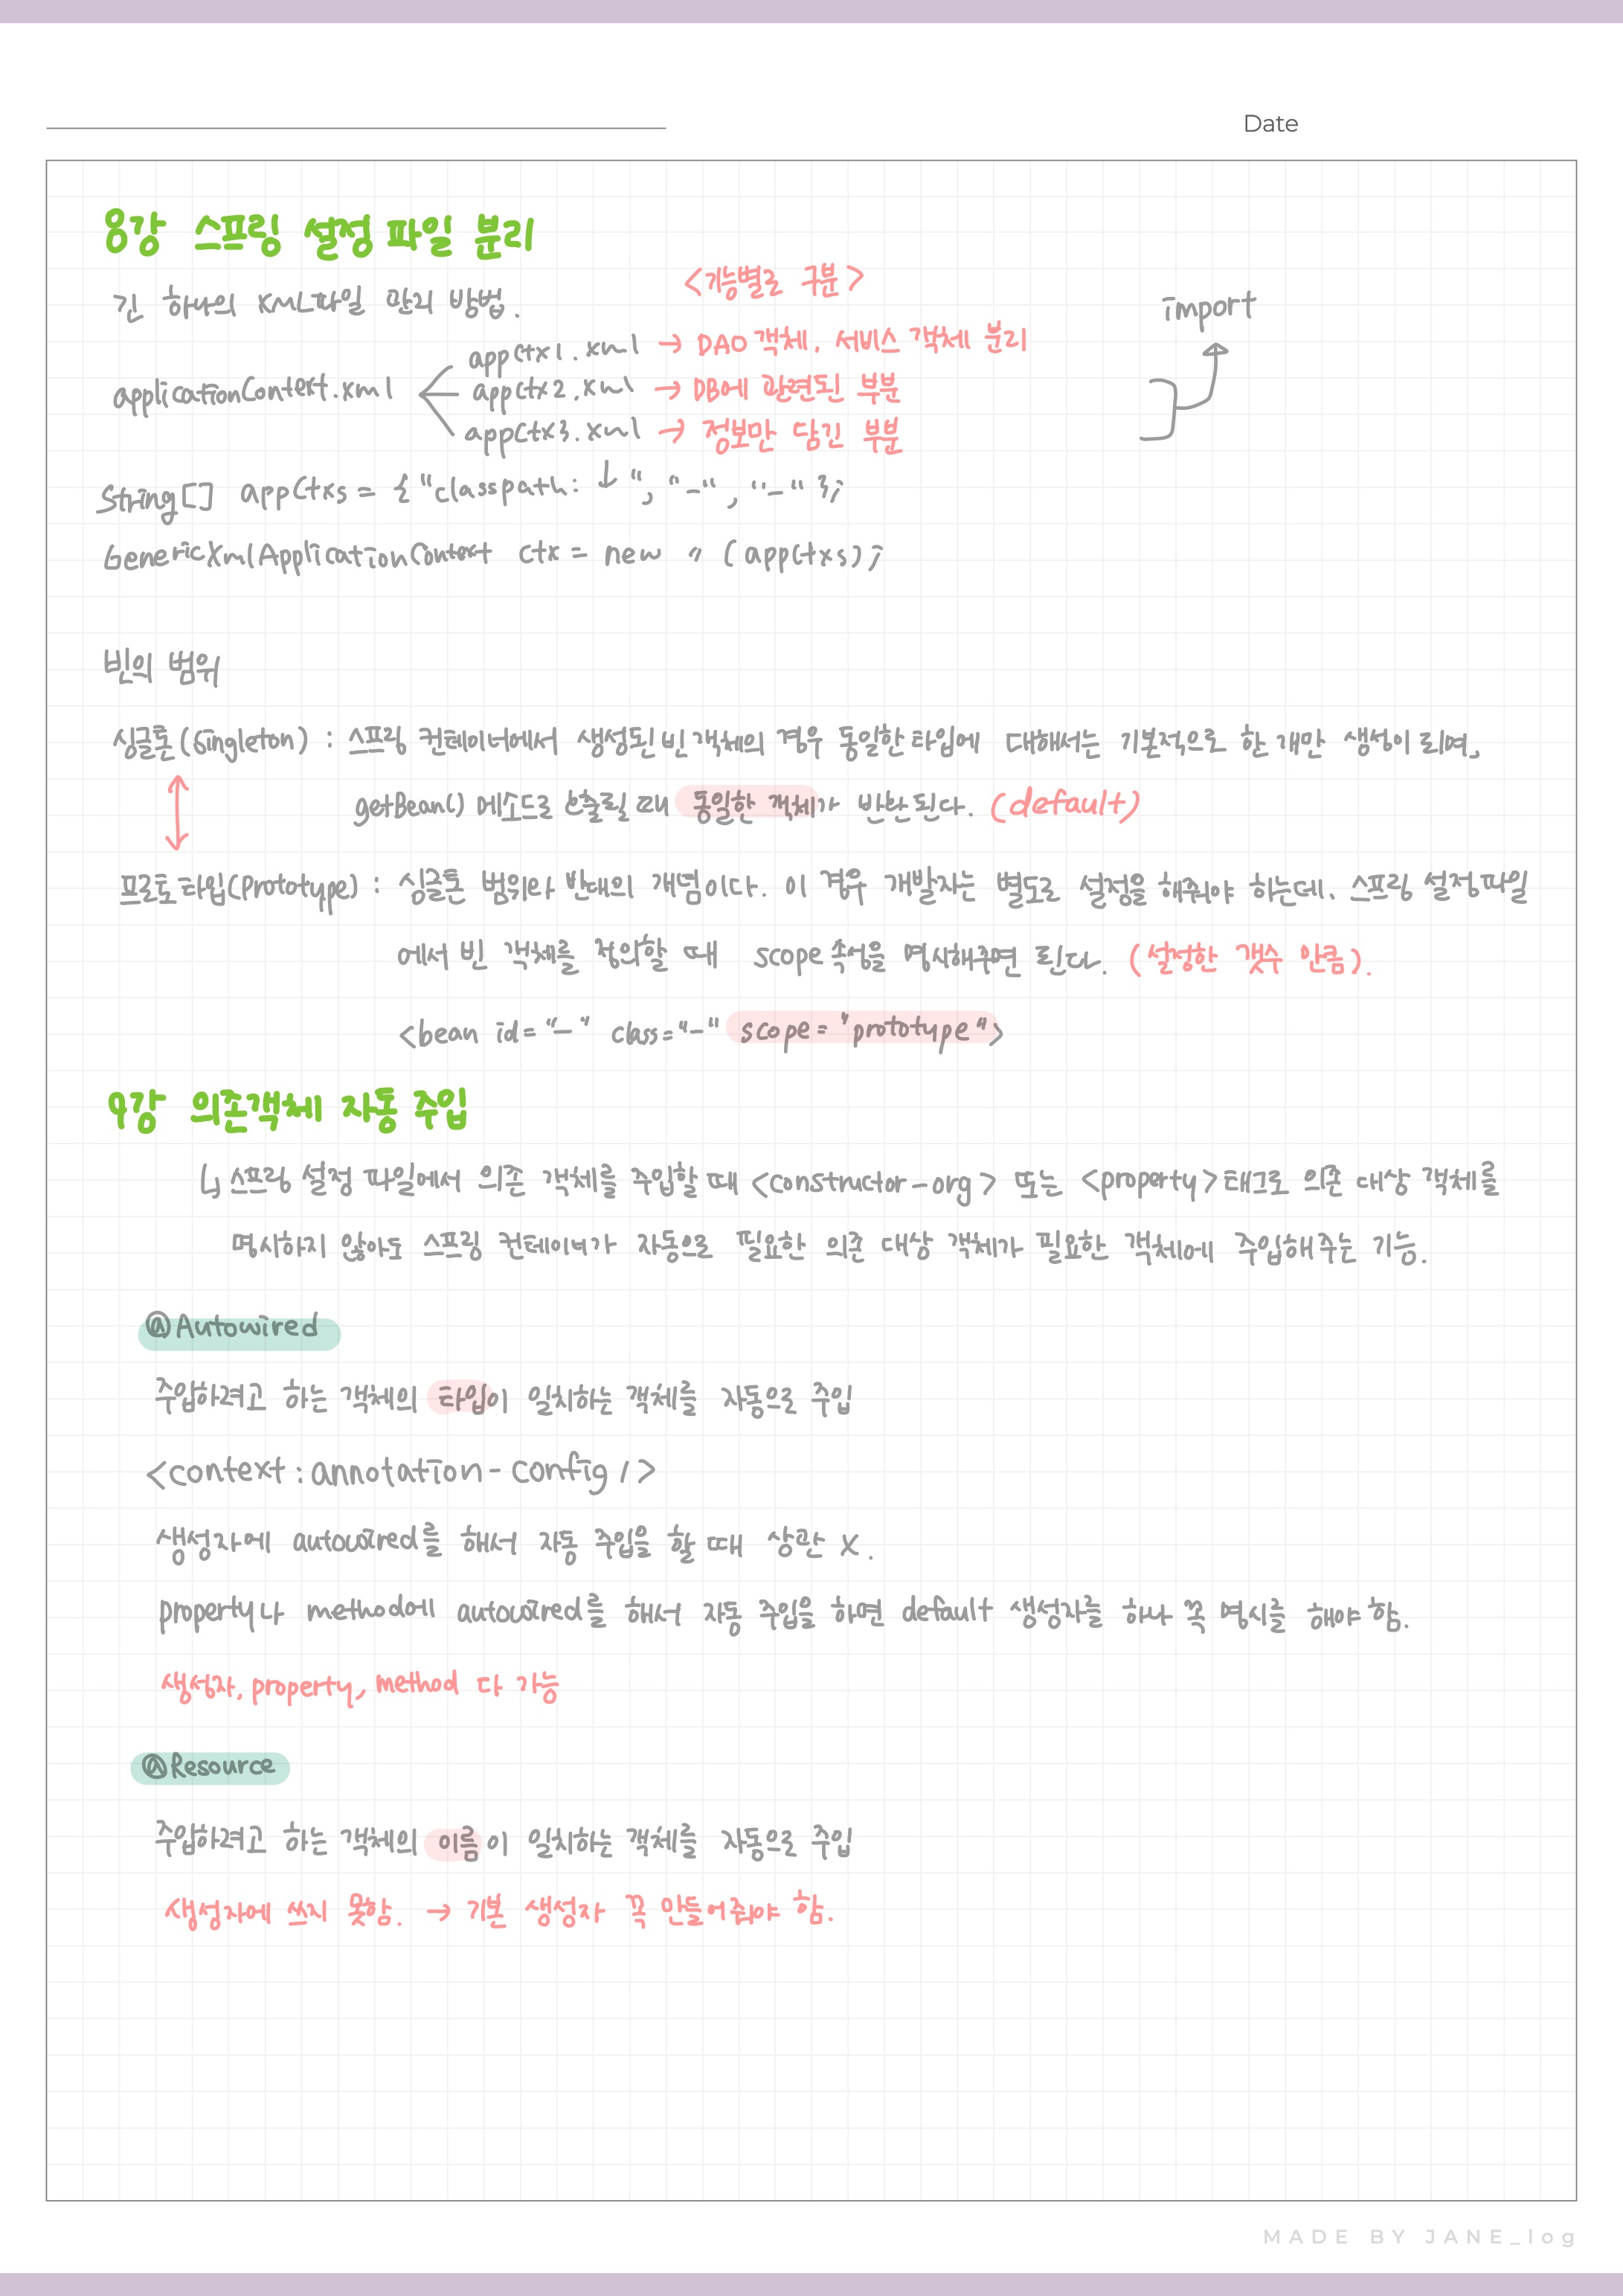 Date
8강 스프링 설정 파일 분리
긴 하나의 XML파일 관리 방법.
<기능별로 구분>
import
applicationContext.xml
appCtx1.xml → DAO 객체, 서비스 객체 분리
appCtx2.xml → DB에 관련된 부분
appCtx3.xml → 정보만 담긴 부분
String[] appCtxs = {"classpath: ↓ ", "-", "-"};
GenericXmlApplicationContext ctx = new 〃 (appCtxs);
빈의 범위
싱글톤(Singleton) : 스프링 컨테이너에서 생성된 빈 객체의 경우 동일한 타입에 대해서는 기본적으로 한 개만 생성이 되며,
getBean() 메소드로 호출될 때 동일한 객체가 반환된다. (default)
프로토타입(Prototype) : 싱글톤 범위와 반대의 개념이다. 이 경우 개발자는 별도로 설정을 해줘야 하는데, 스프링 설정파일
에서 빈 객체를 정의할 때 scope 속성을 명시해주면 된다. (설정한 갯수 만큼).
<bean id="-" class="-" scope="prototype">
9강 의존객체 자동 주입
↳ 스프링 설정 파일에서 의존 객체를 주입할 때 <constructor-org> 또는 <property>태그로 의존 대상 객체를
명시하지 않아도 스프링 컨테이너가 자동으로 필요한 의존 대상 객체가 필요한 객체에 주입해주는 기능.
@Autowired
주입하려고 하는 객체의 타입이 일치하는 객체를 자동으로 주입
<context:annotation-config/>
생성자에 autowired를 해서 자동 주입을 할 때 상관 X.
property나 method에 autowired를 해서 자동 주입을 하면 default 생성자를 하나 꼭 명시를 해야 함.
생성자, property, method 다 가능
@Resource
주입하려고 하는 객체의 이름이 일치하는 객체를 자동으로 주입
생성자에 쓰지 못함. → 기본 생성자 꼭 만들어줘야 함.
MADE BY JANE_log